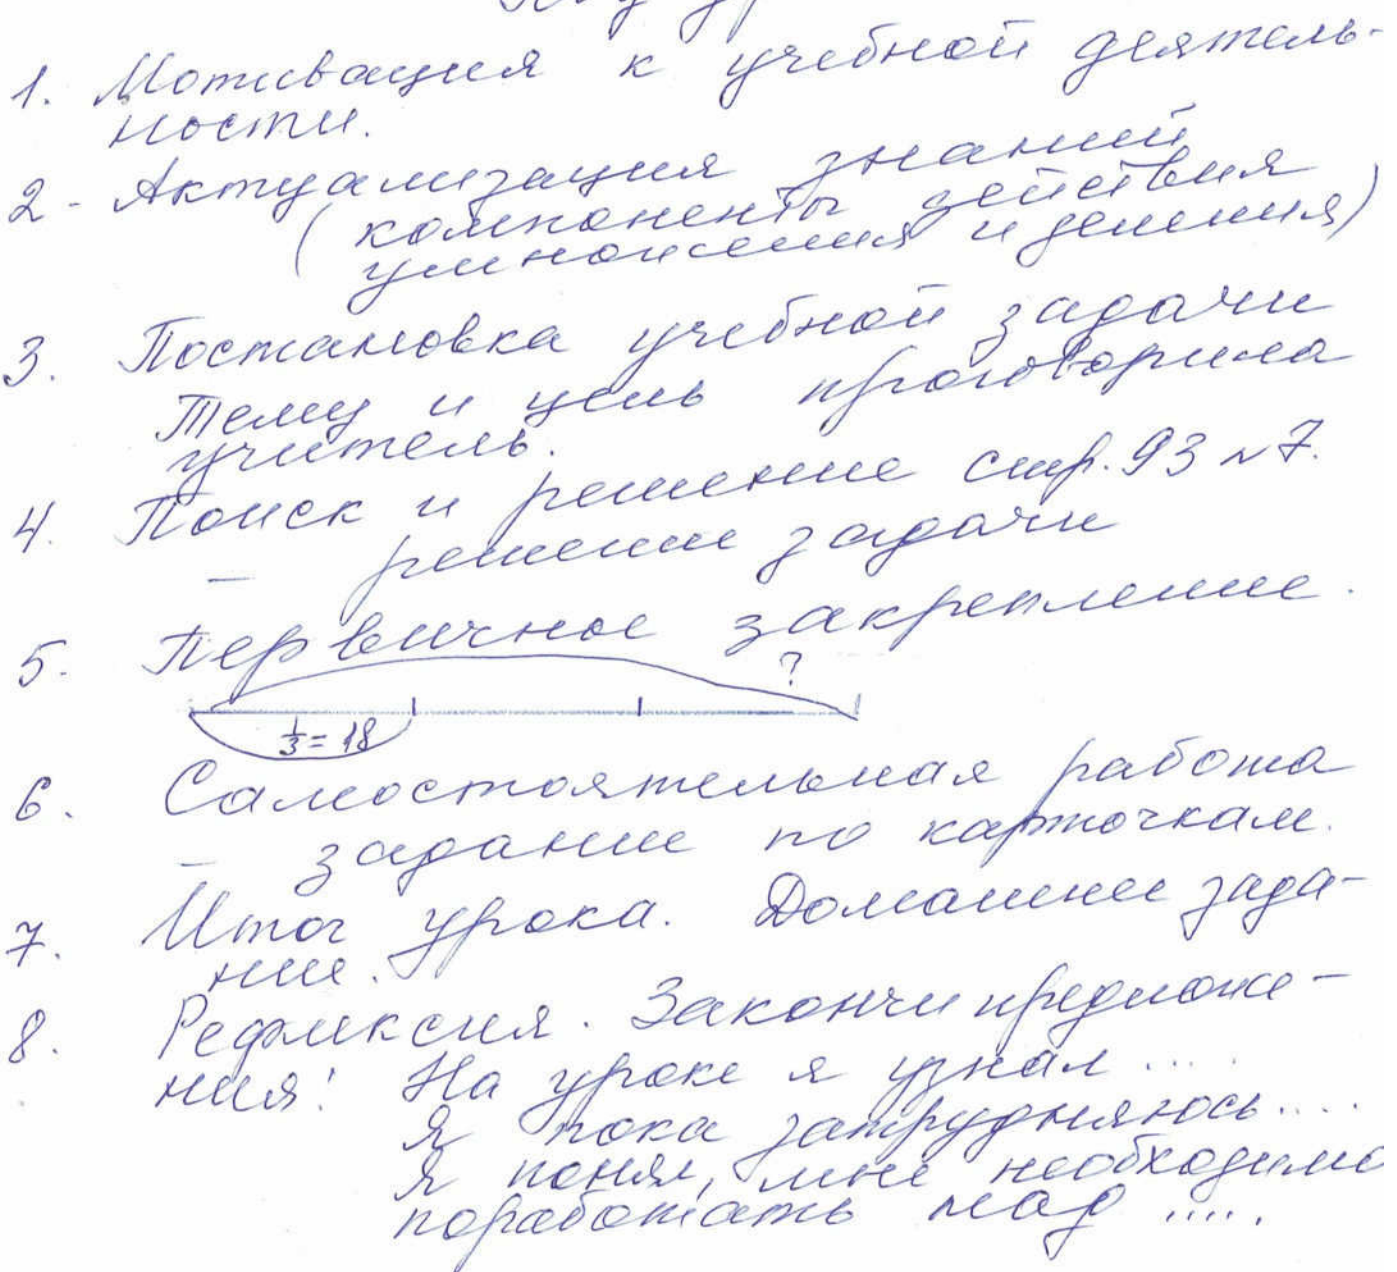 1. Мотивация к учебной деятель-
ности.
2 - Актуализация знаний
(компоненты действия
умножения и деления)
3. Постановка учебной задачи
Тему и цель проговорила
учитель.
4. Поиск и решение стр. 93 №7.
- решение задачи
5. Первичное закрепление.
?
1/3 = 18
6. Самостоятельная работа
- задание по карточкам.
7. Итог урока. Домашнее зада-
ние.
8. Рефлексия. Закончи предложе-
ния! На уроке я узнал ....
Я пока затрудняюсь....
Я понял, мне необходимо
поработать над .....